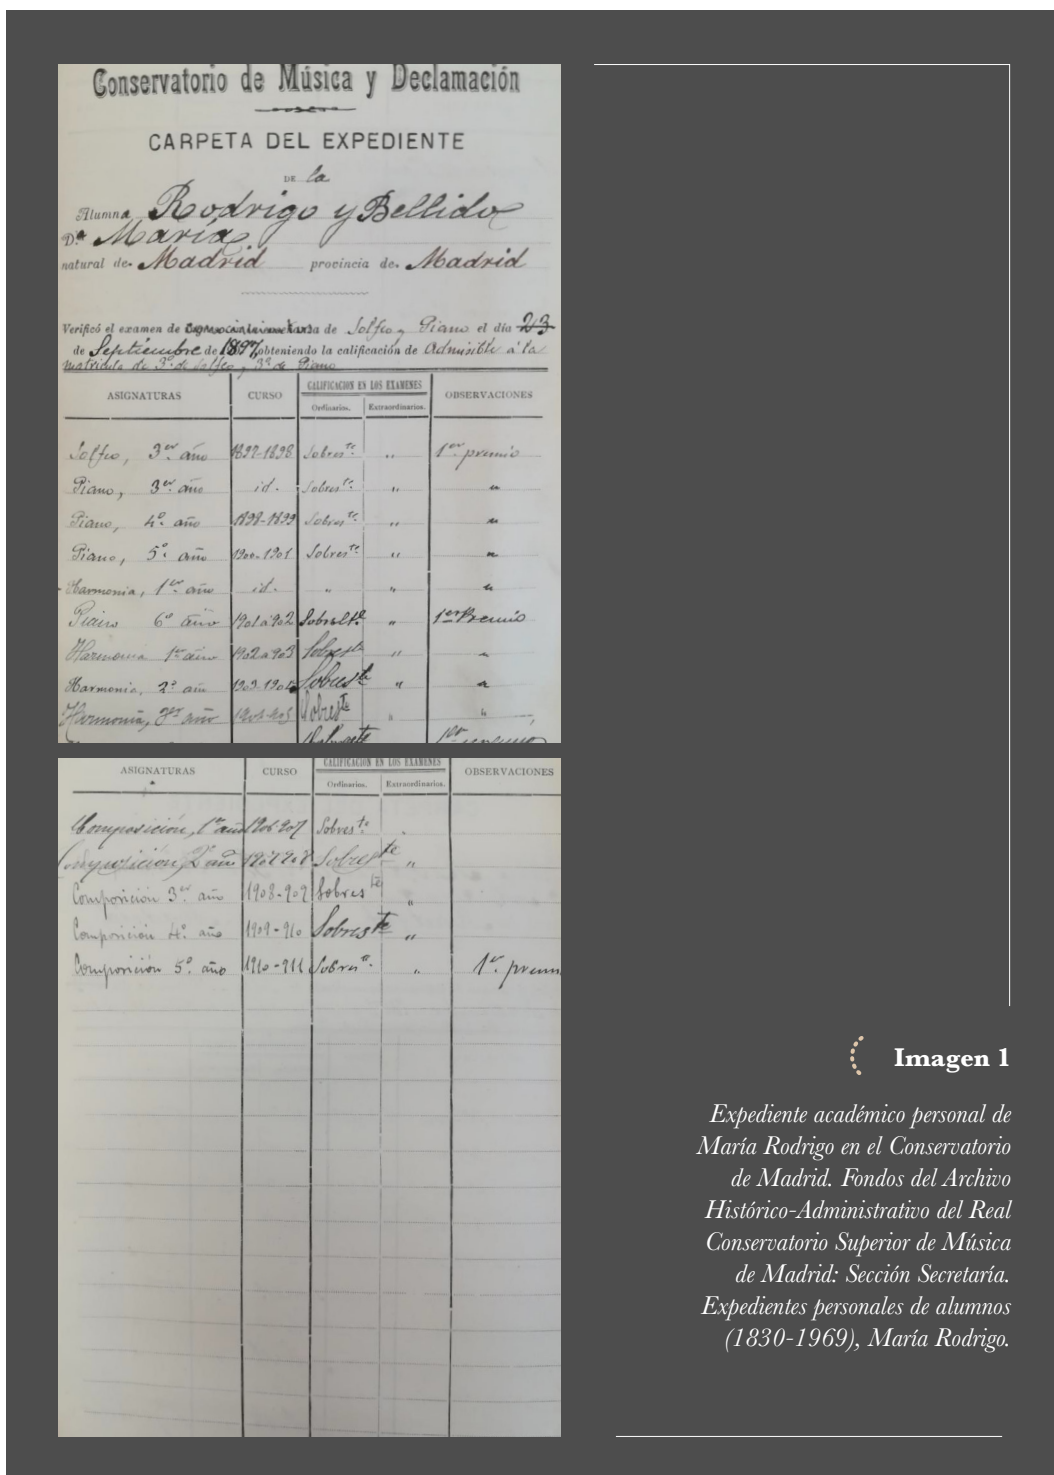 Conservatorio de Música y Declamación
CARPETA DEL EXPEDIENTE
DE la
Alumna Rodrigo y Bellido
D.ª María
natural de Madrid provincia de Madrid
Verificó el examen de de Solfeo y Piano el día 23
de Septiembre de 1897 obteniendo la calificación de Admisible á la
matrícula de 3º de Solfeo y 3º de Piano
ASIGNATURAS CURSO CALIFICACIÓN EN LOS EXÁMENES OBSERVACIONES
Ordinarios. Extraordinarios.
Solfeo, 3er año 1897-1898 Sobreste. " 1er premio
Piano, 3er año id. Sobreste. " "
Piano, 4º año 1898-1899 Sobreste. " "
Piano, 5º año 1900-1901 Sobreste. " "
Harmonia, 1er año id. " " "
Piano 6º año 1901 a 902 Sobreste " 1er Premio
Harmonia 1er año 1902 a 903 Sobreste " "
Harmonia, 2º año 1903-190 Sobreste " "
Harmonía, 3er año 904-905 Sobreste " "
ASIGNATURAS CURSO CALIFICACIÓN EN LOS EXÁMENES OBSERVACIONES
Ordinarios. Extraordinarios.
Composición, 1er año 1906-907 Sobreste. "
Composición 2º año 1907-908 Sobreste "
Composición 3er año 1908-909 Sobreste "
Composición 4º año 1909-910 Sobreste "
Composición 5º año 1910-911 Sobreste. " 1er prem
Imagen 1
Expediente académico personal de
María Rodrigo en el Conservatorio
de Madrid. Fondos del Archivo
Histórico-Administrativo del Real
Conservatorio Superior de Música
de Madrid: Sección Secretaría.
Expedientes personales de alumnos
(1830-1969), María Rodrigo.